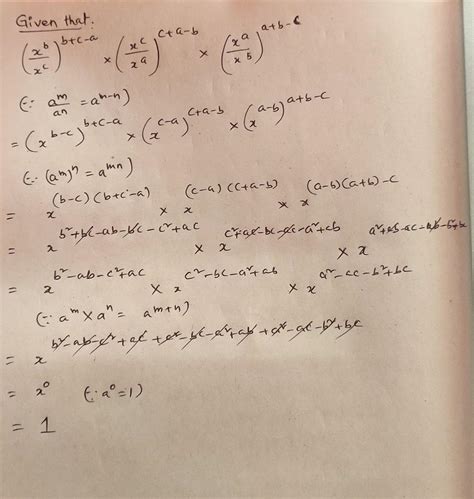 Given that.
(x^b/x^c)^b+c-a × (x^c/x^a)^c+a-b × (x^a/x^b)^a+b-c
(∵ a^m/a^n = a^m-n)
= (x^b-c)^b+c-a × (x^c-a)^c+a-b × (x^a-b)^a+b-c
(∵ (a^m)^n = a^mn)
= x^(b-c)(b+c-a) × x^(c-a)(c+a-b) × x^(a-b)(a+b)-c
= x^b²+bc-ab-bc-c²+ac × x^c²+ac-bc-ac-a²+cb × x
= x^b²-ab-c²+ac × x^c²-bc-a²+ab × x^a²-cc-b²+bc
(∵ a^m × a^n = a^m+n)
= x^b²-ab-c²+ac+c²-bc-a²+ab+a²-ac-b²+bc
= x^0 (∵ a^0 = 1)
= 1